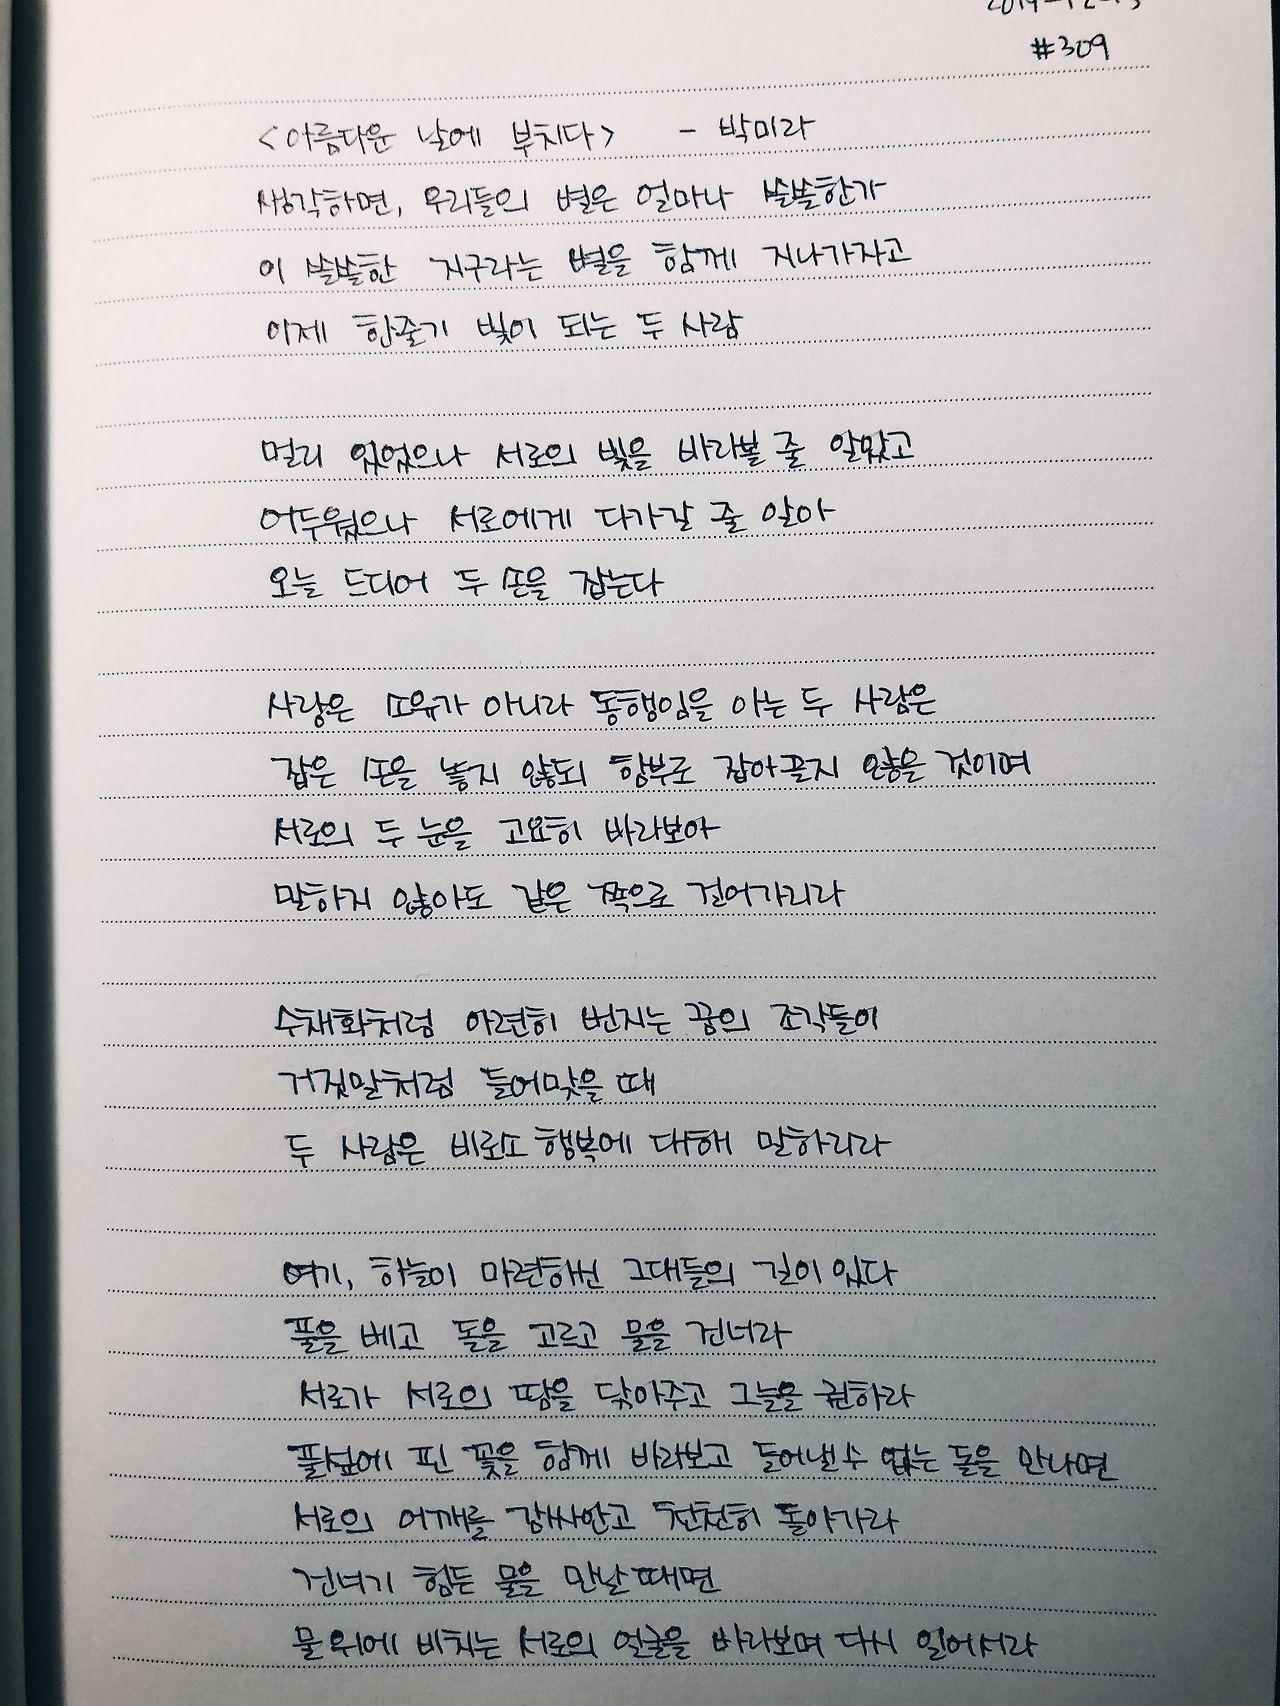 #309
<아름다운 날에 부치다> - 박미라
생각하면, 우리들의 별은 얼마나 쓸쓸한가
이 쓸쓸한 지구라는 별을 함께 지나가자고
이제 한줄기 빛이 되는 두 사람
멀리 있었으나 서로의 빛을 바라볼 줄 알았고
어두웠으나 서로에게 다가갈 줄 알아
오늘 드디어 두 손을 잡는다
사랑은 소유가 아니라 동행임을 아는 두 사람은
잡은 손을 놓지 않되 함부로 잡아끌지 않을 것이며
서로의 두 눈을 고요히 바라보아
말하지 않아도 같은 쪽으로 걸어가리라
수채화처럼 아련히 번지는 꿈의 조각들이
거짓말처럼 들어맞을 때
두 사람은 비로소 행복에 대해 말하리라
여기, 하늘이 마련하신 그대들의 길이 있다
풀을 베고 돌을 고르고 물을 건너라
서로가 서로의 땀을 닦아주고 그늘을 권하라
풀섶에 핀 꽃을 함께 바라보고 들어낼 수 없는 돌을 만나면
서로의 어깨를 감싸안고 천천히 돌아가라
건너기 힘든 물을 만날 때면
물 위에 비치는 서로의 얼굴을 바라보며 다시 일어서라